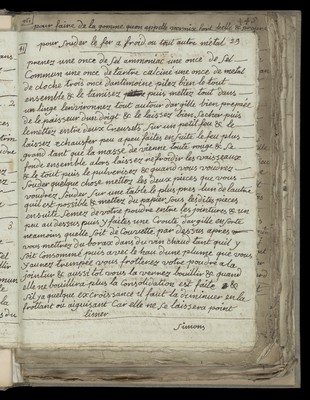 pour faire de la gomme quon appelle
pour souder le fer a froid ou tout autre metal 29
prenez une once de sal ammoniac une once de sal
Commun une once de tartre calciné une once de metal
de cloche trois once dantimoine pilez bien le tout
ensemble & le tamisez puis mettez tout dans
un linge lenvironnez tout autour dargille bien preparée
de le paisseur dun doigt & le laissez bien secher puis
le mettez entre deux Creusets sur un petit feu & le
laissez echauffer peu a peu faites ensuitte le feu plus
grand tant que la masse de vienne toute rouge & se
fonde ensemble alors laissez refroidir les vaisseaux
& le tout puis le pulverisez & quand vous voudrez
Souder quelque chose mettez les deux pieces que vous
voudrez souder sur une table le plus pres lun de lautre
quil est possible & mettez du papier sous lesdites pieces
ensuitte Semez de votre poudre entre les jointures & un
peu au dessus puis y faites une Croute dargille en sorte
neanmoins quelle soit de Couverte par dessus apres
vous mettrez du borax dans du vin chaud tant quil y
soit Consommé puis avec le bout dune plume que vous
y aurez trempée vous frotterez votre poudre a la
jointur & aussi tot vous la verrez bouillir & quand
elle ne bouillira plus la Consolidation est faite &
sil ya quelque excroissance il faut la diminuer en la
frottant ou aiguisant Car elle ne se laissera point
limer
Simon